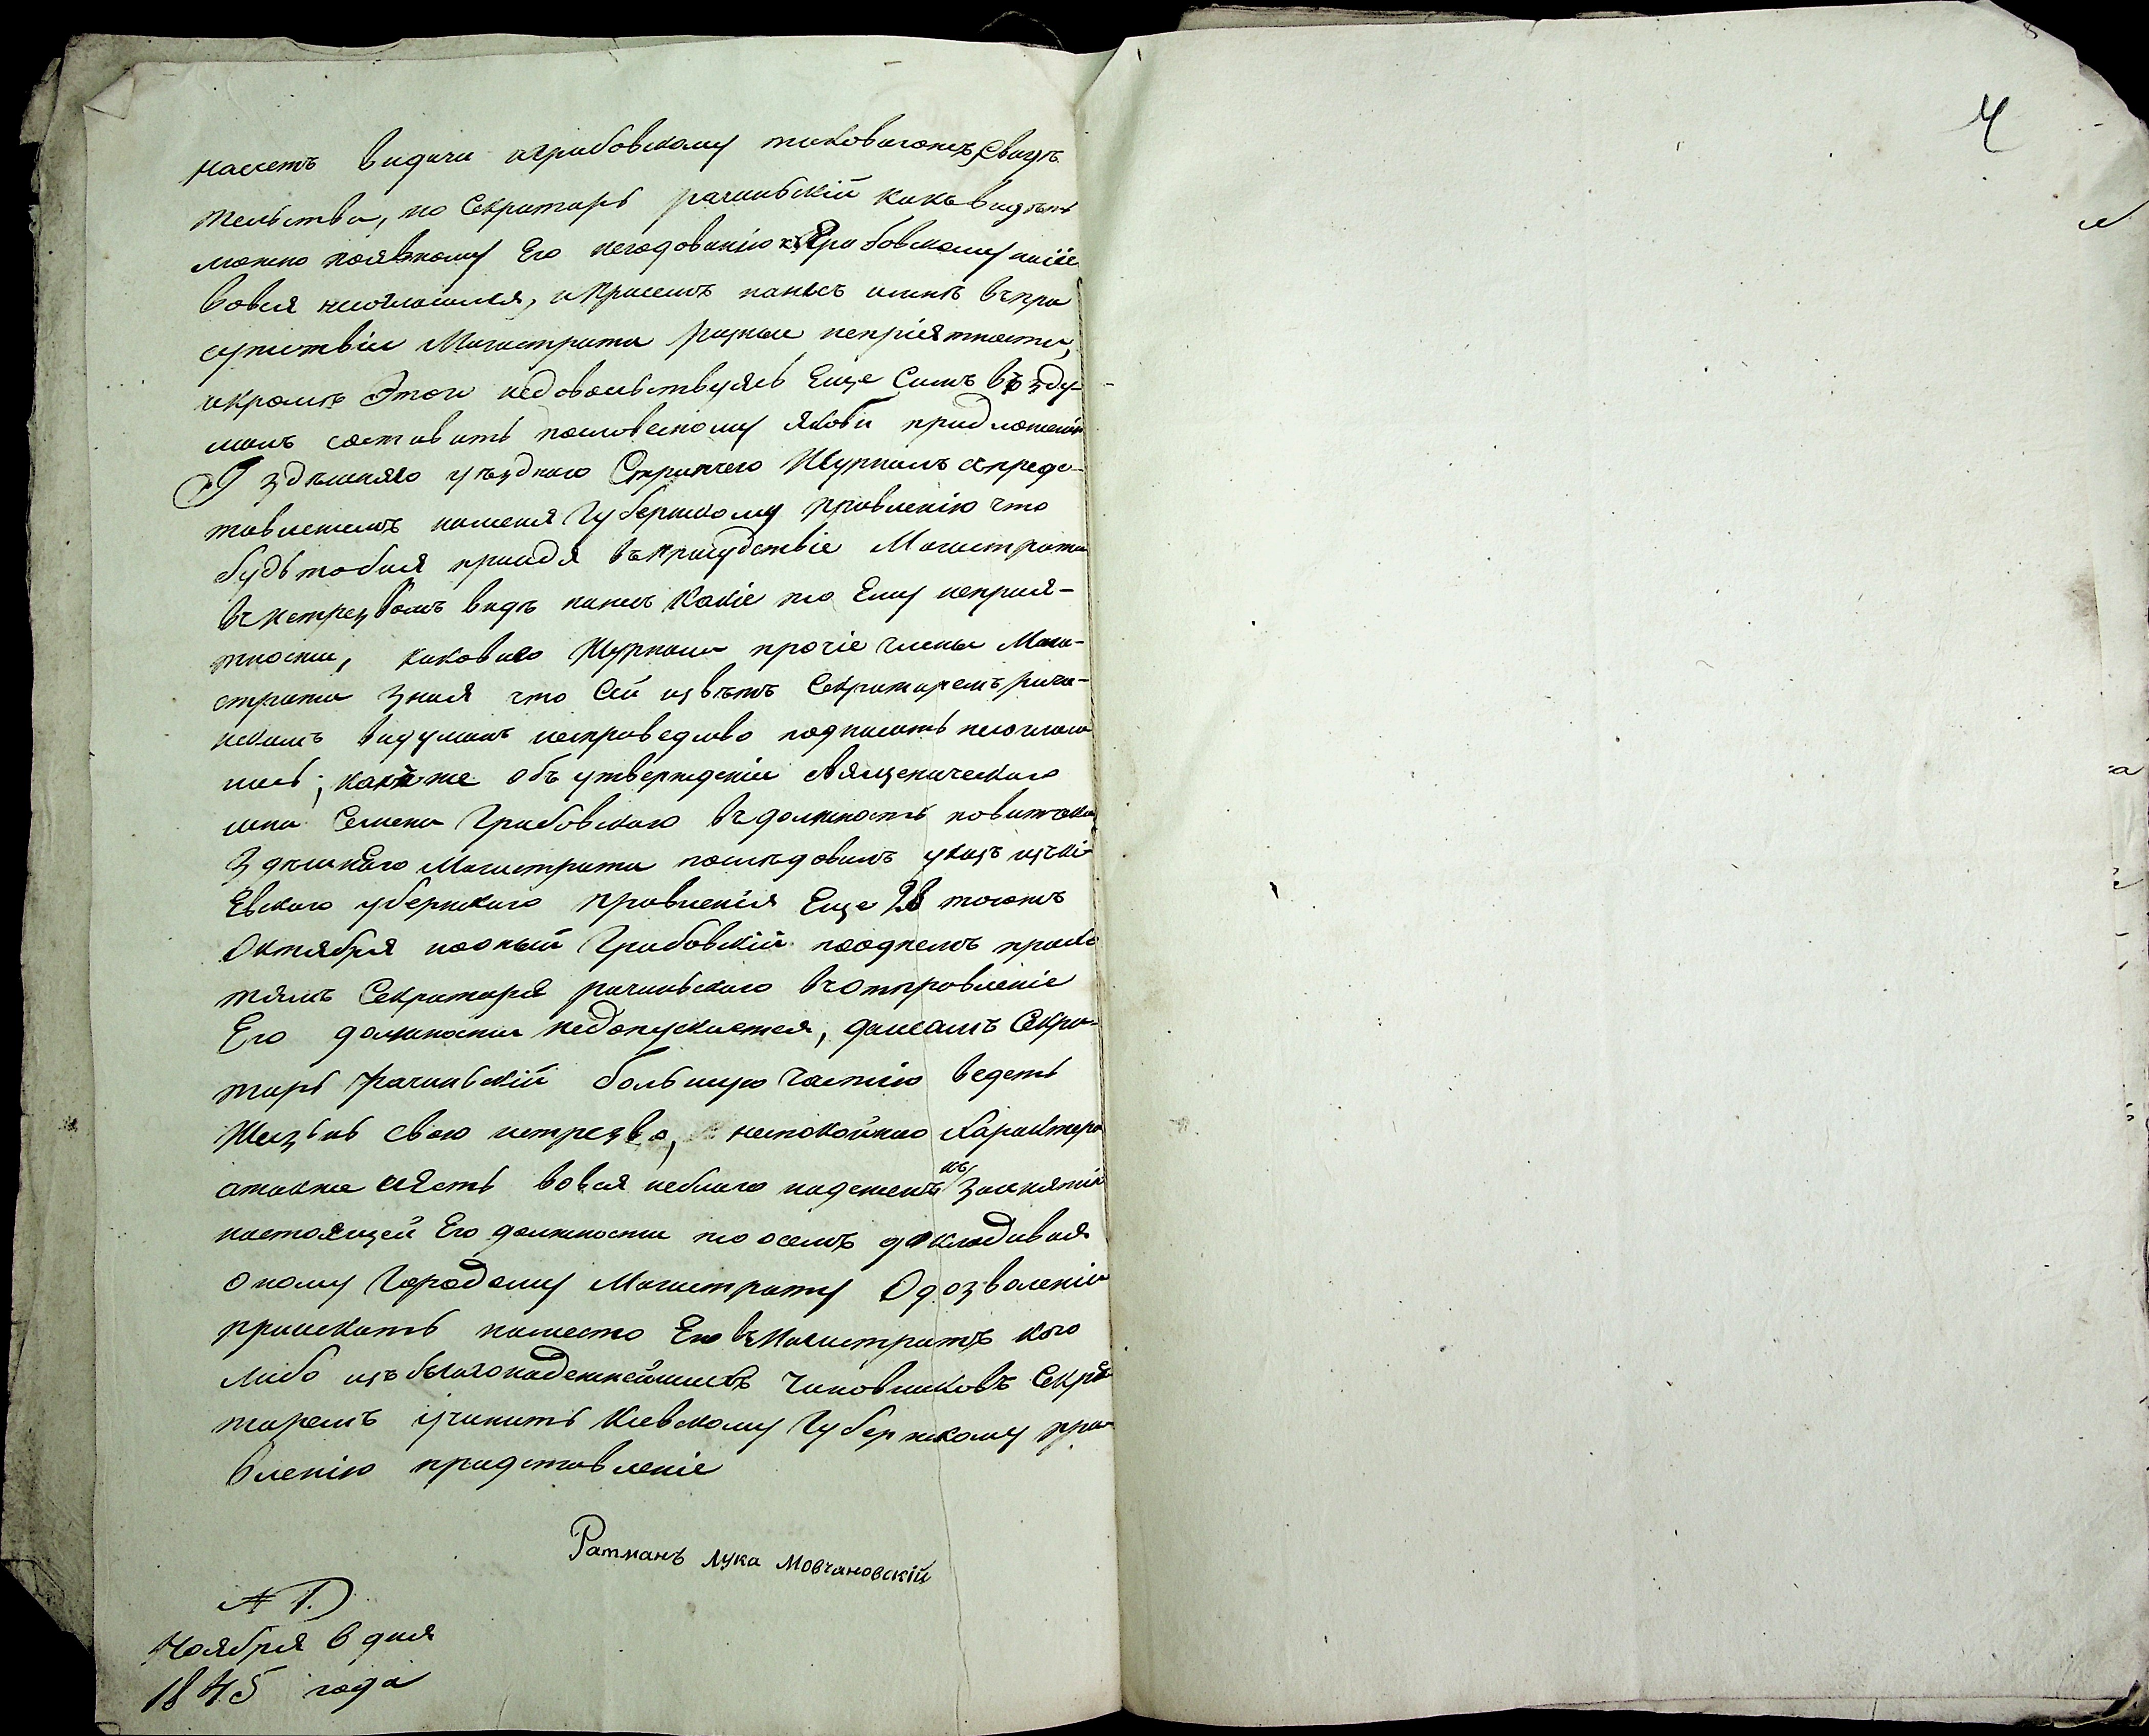 насчетъ видачи играбовскому таковагожъ, свидѣ
тельства, но Секритарь рачинскій какъ видѣть
можно появному Его негодованію къ Грабовскому на сіе
вовся несогласился, икрасемъ нанесъ мнѣ въпри
сутствіи Магистрата разные непріятности,
икромѣ Этаго недовольствуясь Еще Симъ въ зду-
малъ составить пословесному якобы предложенію
Г здѣшняго уѣзднаго Стряпчего Журналъ спредс-
тавленіемъ наменя Губернскому правленію что
будьтобыя прийдя въприсудствіе Магистрата
внетрезвомъ видѣ нанесъ какіе то Ему непрія-
тности, каковаго Журнала прочіе члены Маги-
страта зная что Сей извѣтъ Секритаремъ рачи-
нскимъ видуманъ несправедливо подписать несогласи
лись; какъже объ утвержденіи священическаго
сына Семена Грабовскаго въдолжность повитчика
здѣшняго Магистрата послѣдовалъ указъ изъкі-
Евского губернского правленія Еще 28 тогожъ
Октября нооный Грабовскій поодпемъ прыкс
тямъ Секритаря рачинского вчотправленіе
Его должности недопускается, дасамъ Секри-
тарь рачинскій большую частію ведетъ
Жизьнь свою нетрезво, непокойнаго Характера
атакже иесть вовся неблаго надеженъ къ Занятію
настоящей Его должности то осемъ докладивая
оному Городому Магистрату Одозволеніи
приискать наместо Его вМагистратъ кого
либо изъ благонадежнейшихъ Чиновниковъ Секри
таремъ учинить Киевскому Губернскому пра-
вленію придставленіе
Ратманъ Лука Мовчановскій
Ноября 6 дня
1845 года
4